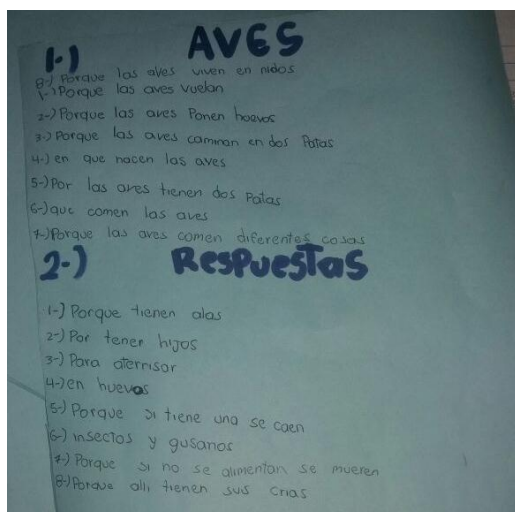 1-) AVES
8-) Porque las aves viven en nidos
1-) Porque las aves vuelan
2-) Porque las aves Ponen huevos
3-) Porque las aves caminan en dos Patas
4-) en que nacen las aves
5-) Por las aves tienen dos Patas
6-) que comen las aves
7-) Porque las aves comen diferentes cosas
2-) Respuestas
1-) Porque tienen alas
2-) Por tener hijos
3-) Para aterrisar
4-) en huevos
5-) Porque si tiene una se caen
6-) insectos y gusanos
7-) Porque si no se alimentan se mueren
8-) Porque alli tienen sus crias